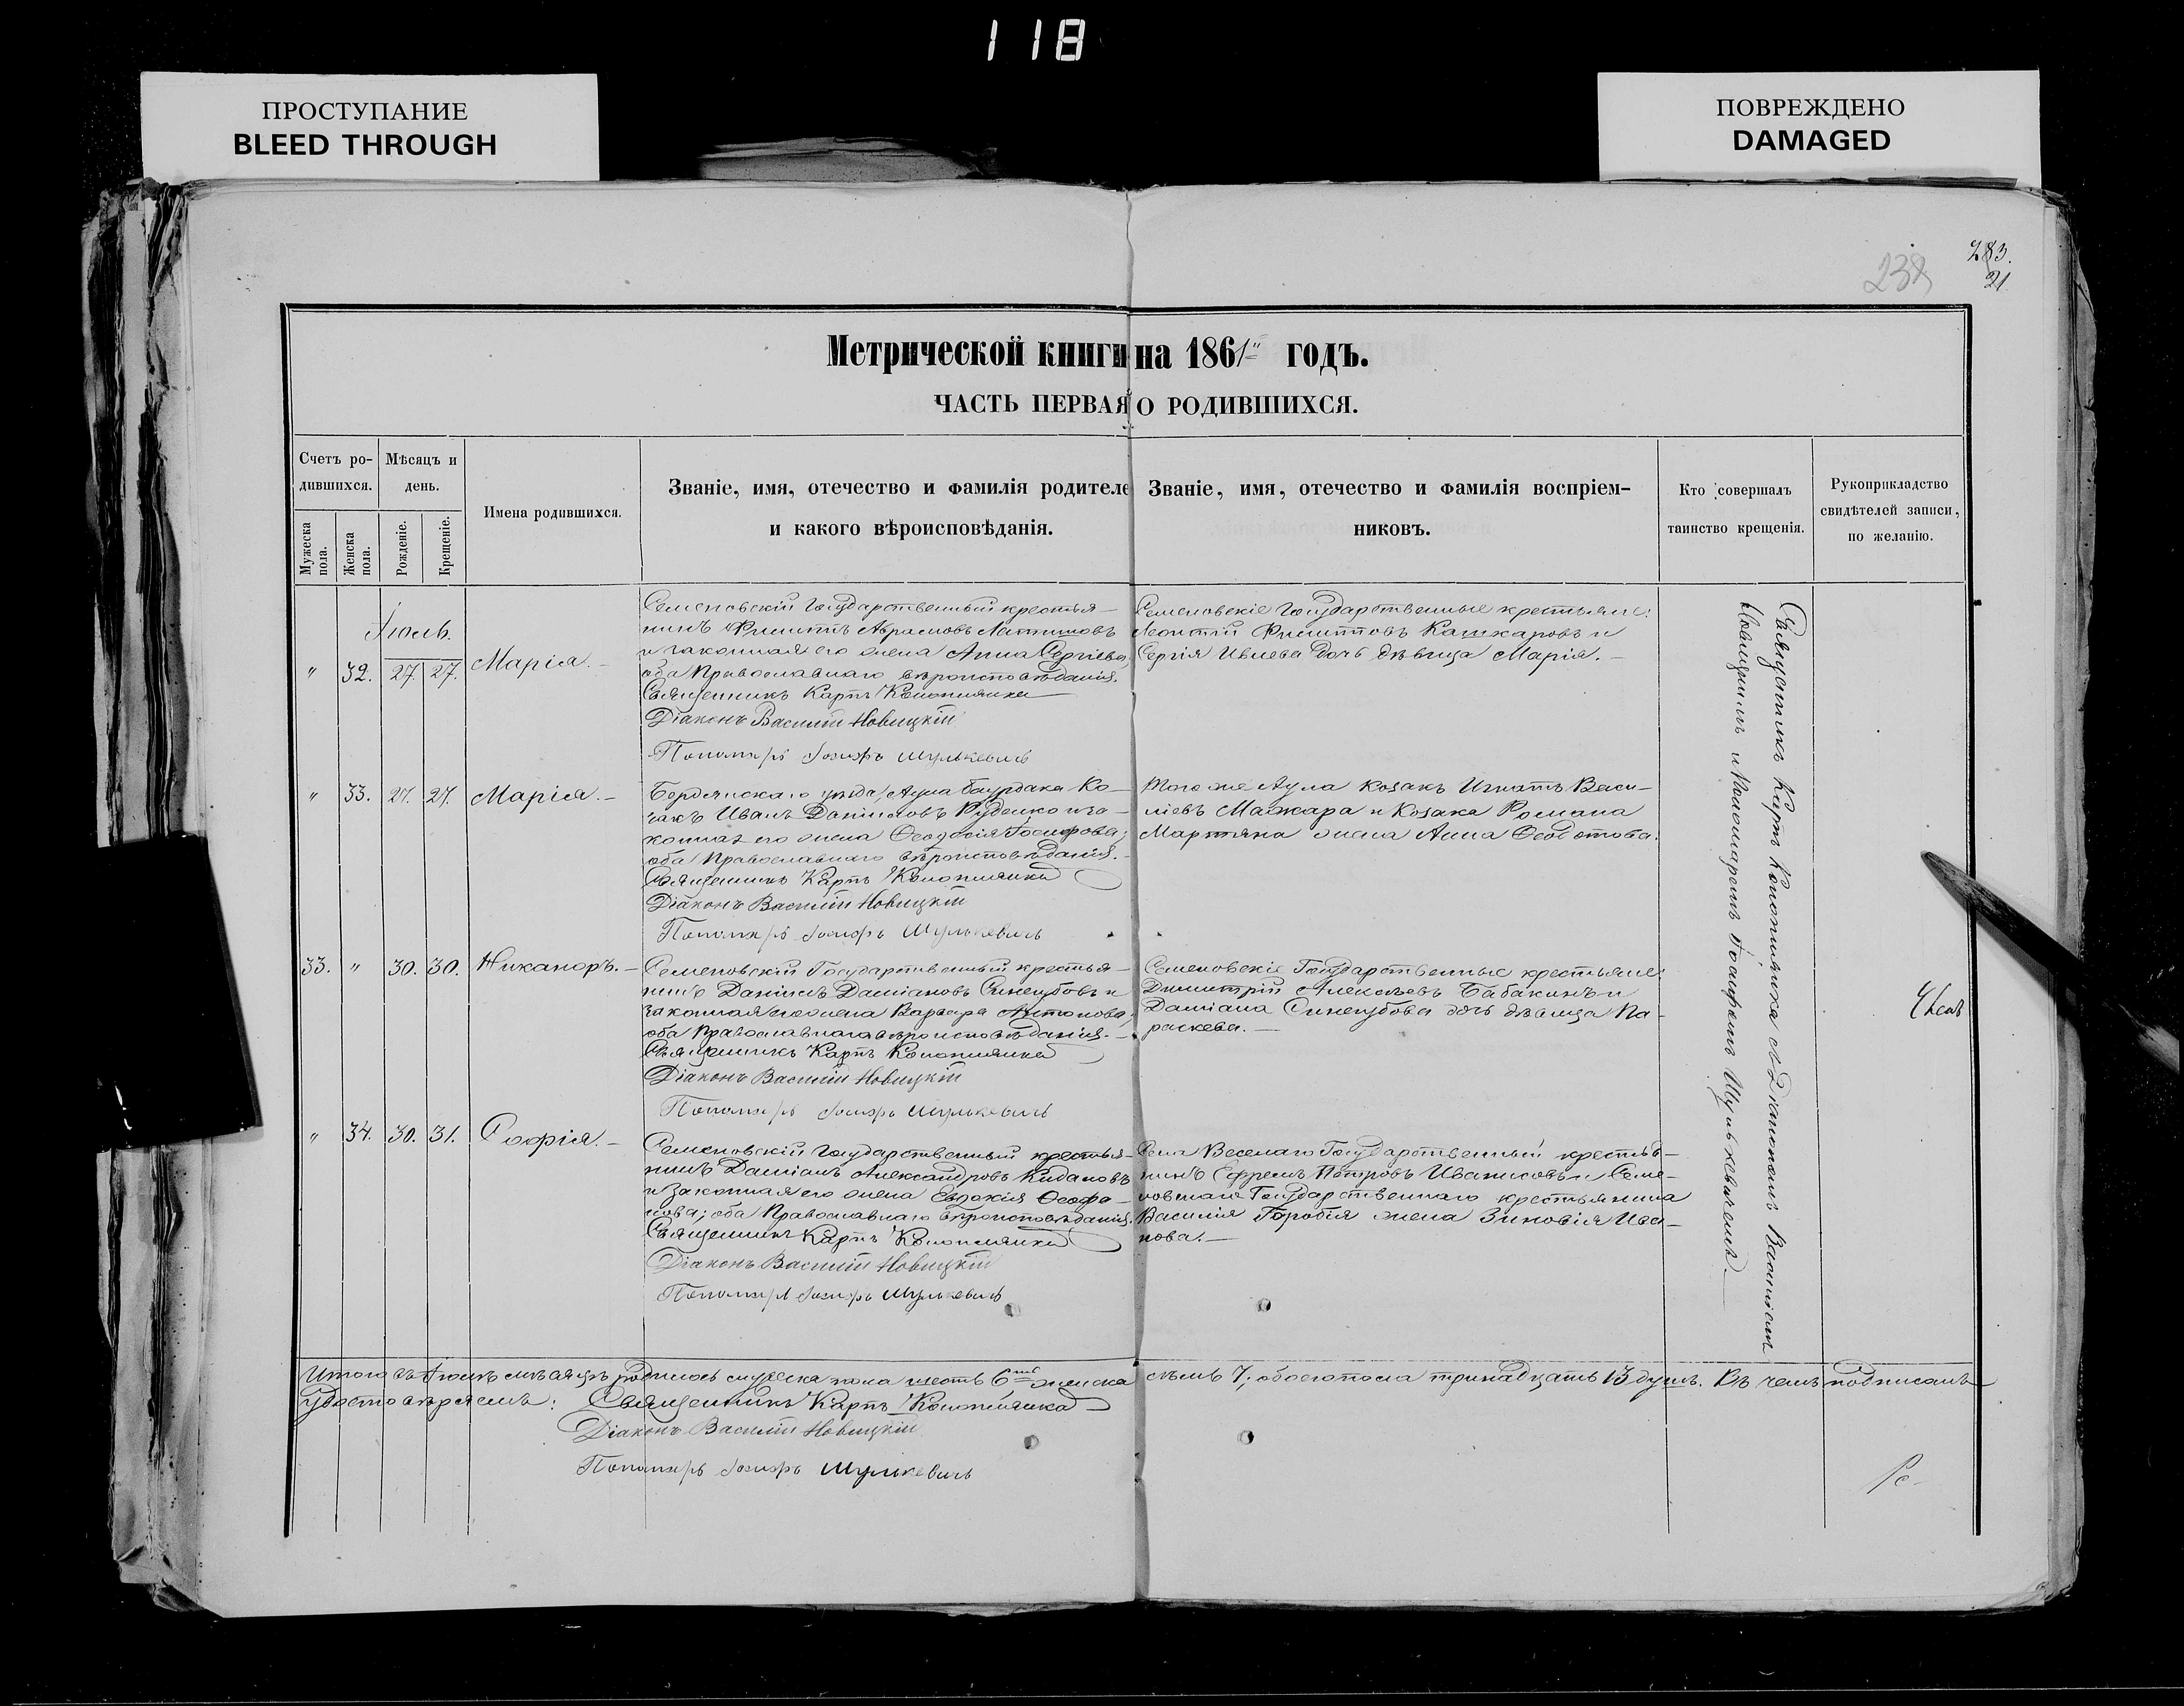 118
ПРОСТУПАНИЕ
BLEED THROUGH
ПОВРЕЖДЕНО
DAMAGED
238
283.
21
Метрической книги на 1861 годъ.
ЧАСТЬ ПЕРВАЯ О РОДИВШИХСЯ.
Счетъ ро-
дившихся.
Мужеска пола.
Женска пола.
Мѣсяцъ и
день.
Рожденіе.
Крещеніе.
Имена родившихся.
Званіе, имя, отечество и фамилія родителе
и какого вѣроисповѣданія.
Званіе, имя, отечество и фамилія воспріем-
никовъ.
Кто совершалъ
таинство крещенія.
Рукоприкладство
свидѣтелей записи,
по желанію.
Іюль.
" 32. 27. 27. Марія.-
Семеновскій Государственный крестья-
нинъ Филиппъ Абрамовъ
и законная его жена Анна Сергіева,
оба Православнаго вѣроисповѣданія.
Священникъ Карпъ Коноплянка
Діаконъ Василій Новицкій
Пономарь Іосифъ Шулькевичъ
Семеновскіе Государственные крестьяне:
Леонтій Филипповъ Кашкаровъ и
Сергія Ивлева дочь дѣвица Марія.-
" 33. 27. 27. Марія.-
Бердянскаго уѣзда, Аула Баурдака Ко-
закъ Иванъ Даниловъ Руденко и за-
конная его жена Феодосія Іосифова;
оба Православнаго вѣроисповѣданія.-
Священникъ Карпъ Коноплянка
Діаконъ Василій Новицкій
Пономарь Іосифъ Шулькевичъ
Того же Аула Козакъ Игнатъ Васи-
ліевъ Мажара и Козака Романа
Мартяна жена Анна Феодотова.
33. " 30. 30. Никаноръ.-
Семеновскій Государственный крестья-
нинъ Даніилъ Даміановъ Синегубовъ и
законная его жена Варвара Антонова;
оба Православнаго вѣроисповѣданія.-
Священникъ Карпъ Коноплянка
Діаконъ Василій Новицкій
Пономарь Іосифъ Шулькевичъ
Семеновскіе Государственные крестьяне:
Димитрій Алексѣевъ Бабакинъ и
Даміана Синегубова дочь дѣвица Па-
раскева.-
" 34. 30. 31. Софія.-
Семеновскій Государственный крестья-
нинъ Даміанъ Александровъ Кидаловъ
и законная его жена Евдокія Феофа-
нова; оба Православнаго вѣроисповѣданія.
Священникъ Карпъ Коноплянка
Діаконъ Василій Новицкій
Пономарь Іосифъ Шулькевичъ
Села Веселаго Государственный крестья-
нинъ Ефремъ Петровъ и Семе-
новскаго Государственнаго крестьянина
Василія жена Зиновія Ива-
нова.-
Священникъ Карпъ Коноплянка съ Діакономъ Василіемъ
Новицкимъ и Пономаремъ Іосифомъ Шулькевичемъ.-
Итого въ Іюлѣ мѣсяцѣ родилось мужеска пола шесть 6 женска семь 7; обоего пола тринадцать 13 душъ. Въ чемъ подписомъ
удостовѣряемъ: Священникъ Карпъ Коноплянка
Діаконъ Василій Новицкій
Пономарь Іосифъ Шулькевичъ